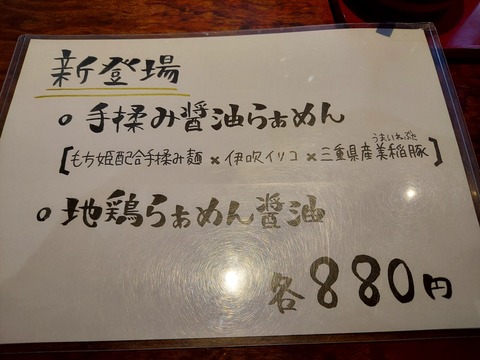 新登場
○手揉み醤油らぁめん
うまいねぶた
[もち姫配合手揉み麺×伊吹イリコ×三重県産美稲豚]
○地鶏らぁめん醤油
各880円